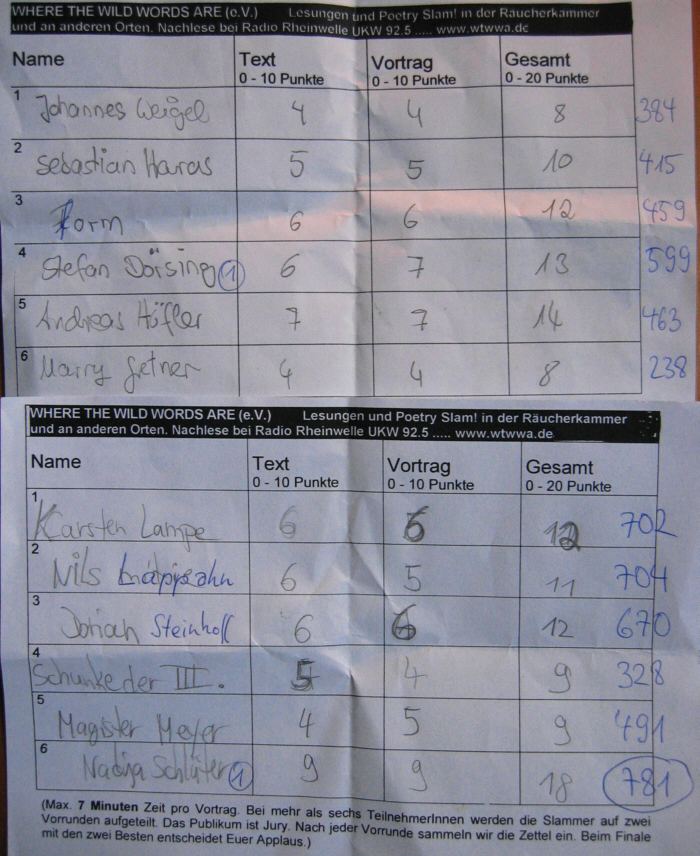 WHERE THE WILD WORDS ARE (e.V.) Lesungen und Poetry Slam! in der Räucherkammer
und an anderen Orten. Nachlese bei Radio Rheinwelle UKW 92.5 ..... www.wtwwa.de
Name Text Vortrag Gesamt
0 - 10 Punkte 0 - 10 Punkte 0 - 20 Punkte
1 Johannes Weigel 4 4 8 384
2 Sebastian Haras 5 5 10 415
3 Form 6 6 12 459
4 Stefan Dörsing 1 6 7 13 599
5 Andreas Höfler 7 7 14 463
6 Marry 4 4 8 238
WHERE THE WILD WORDS ARE (e.V.) Lesungen und Poetry Slam! in der Räucherkammer
und an anderen Orten. Nachlese bei Radio Rheinwelle UKW 92.5 ..... www.wtwwa.de
Name Text Vortrag Gesamt
0 - 10 Punkte 0 - 10 Punkte 0 - 20 Punkte
1 Karsten Lampe 6 6 12 702
2 Nils 6 5 11 704
3 Steinhoff 6 6 12 670
4 Schunke der III. 5 4 9 328
5 Magister Meyer 4 5 9 491
6 Nadija Schlüter 1 9 9 18 781
(Max. 7 Minuten Zeit pro Vortrag. Bei mehr als sechs TeilnehmerInnen werden die Slammer auf zwei
Vorrunden aufgeteilt. Das Publikum ist Jury. Nach jeder Vorrunde sammeln wir die Zettel ein. Beim Finale
mit den zwei Besten entscheidet Euer Applaus.)